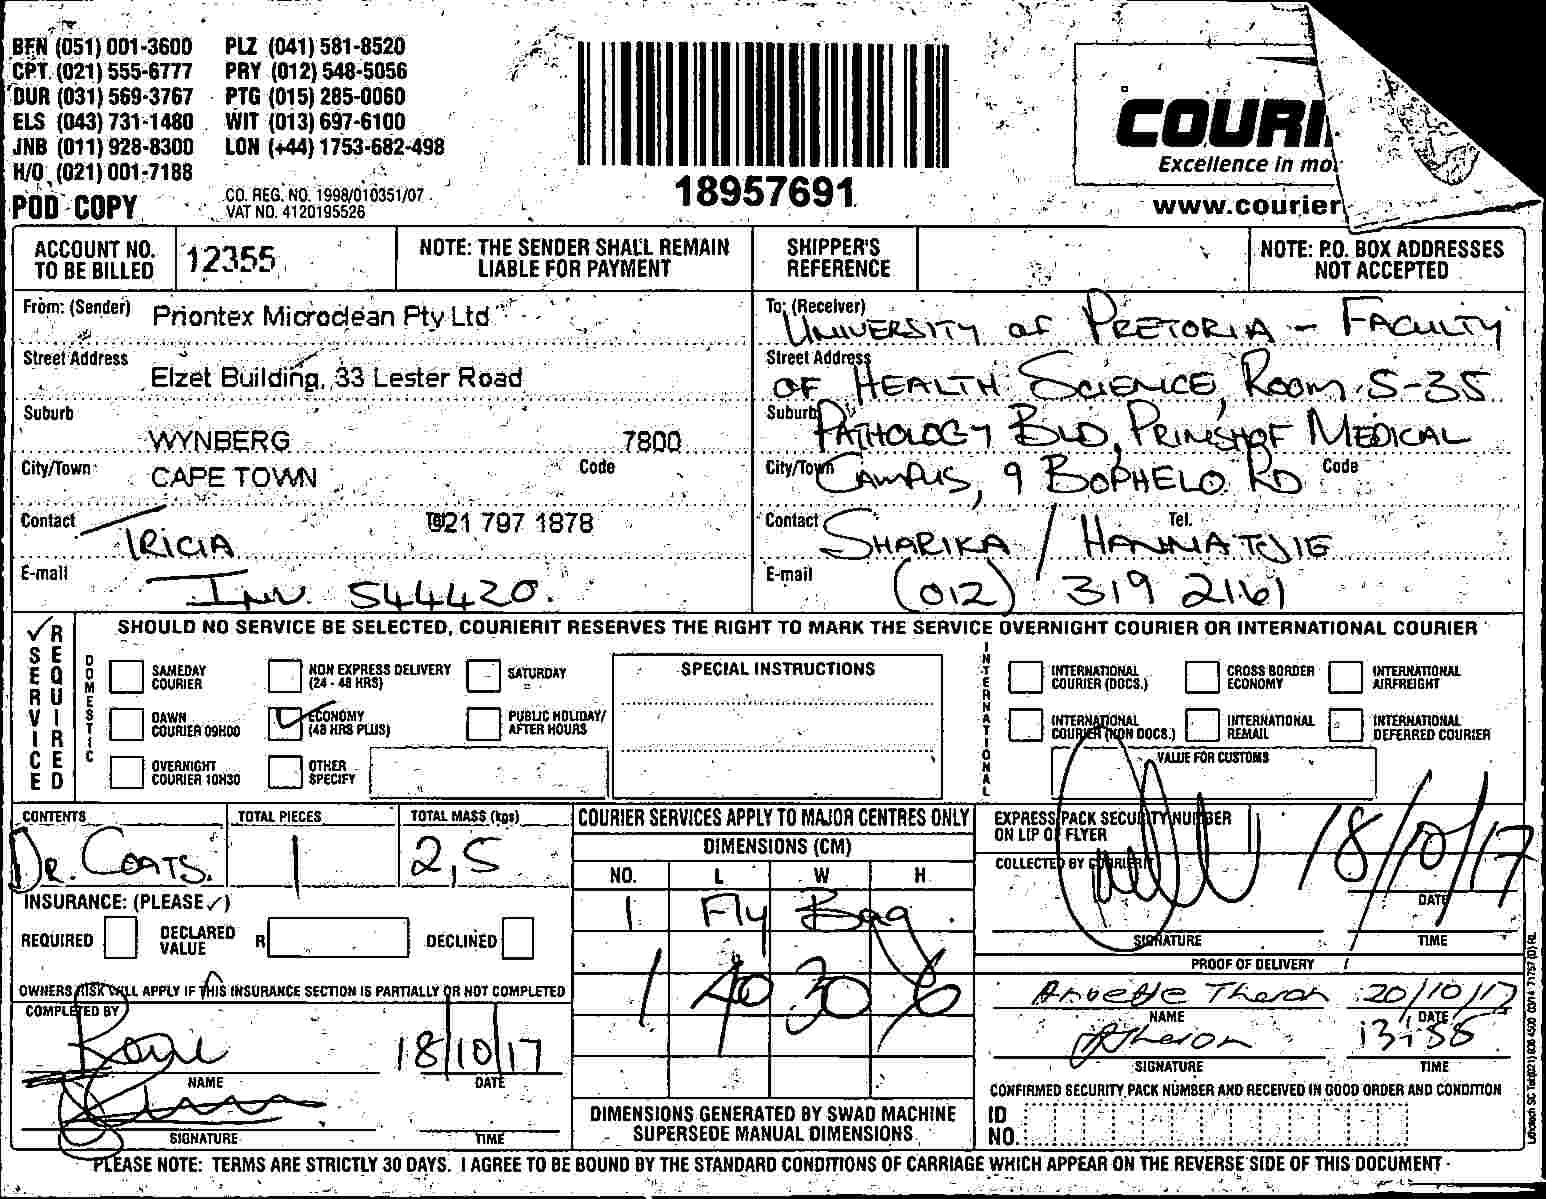 BFN (051) 001-3600 PLZ (041) 581-8520
CPT. (021) 555-6777 PRY (012) 548-5056
DUR (031) 569-3767 PTG (015) 285-0060
ELS (043) 731-1480 WIT (013) 697-6100
JNB (011) 928-8300 LON (+44) 1753-682-498
H/O (021) 001-7188
POD COPY
CO. REG. NO. 1998/010351/07
VAT NO. 4120195526
18957691
COURI
Excellence in mo
www.courier
ACCOUNT NO. TO BE BILLED 12355
NOTE: THE SENDER SHALL REMAIN LIABLE FOR PAYMENT
SHIPPER'S REFERENCE
NOTE: P.O. BOX ADDRESSES NOT ACCEPTED
From: (Sender) Priontex Microclean Pty Ltd
Street Address Elzet Building, 33 Lester Road
Suburb WYNBERG 7800
City/Town CAPE TOWN Code
Contact TRICIA 021 797 1878
E-mail INV. 544420.
To: (Receiver) UNIVERSITY OF PRETORIA - FACULTY
Street Address OF HEALTH SCIENCE, ROOM S-35
Suburb PATHOLOGY BLD, PRINSHOF MEDICAL
City/Town CAMPUS, 9 BOPHELO RD Code
Contact SHARIKA / HANNATJIE Tel.
E-mail (012) 319 2161
SERVICE REQUIRED
SHOULD NO SERVICE BE SELECTED, COURIERIT RESERVES THE RIGHT TO MARK THE SERVICE OVERNIGHT COURIER OR INTERNATIONAL COURIER
DOMESTIC
SAMEDAY COURIER
NON EXPRESS DELIVERY (24 - 48 HRS)
SATURDAY
DAWN COURIER 09H00
ECONOMY (48 HRS PLUS)
PUBLIC HOLIDAY/ AFTER HOURS
OVERNIGHT COURIER 10H30
OTHER SPECIFY
SPECIAL INSTRUCTIONS
INTERNATIONAL
INTERNATIONAL COURIER (DOCS.)
CROSS BORDER ECONOMY
INTERNATIONAL AIRFREIGHT
INTERNATIONAL COURIER (NON DOCS.)
INTERNATIONAL REMAIL
INTERNATIONAL DEFERRED COURIER
VALUE FOR CUSTOMS
CONTENTS DR. COATS.
TOTAL PIECES 1
TOTAL MASS (kgs) 2,5
INSURANCE: (PLEASE ✓)
REQUIRED DECLARED VALUE R DECLINED
OWNERS RISK WILL APPLY IF THIS INSURANCE SECTION IS PARTIALLY OR NOT COMPLETED
COMPLETED BY
18/10/17
NAME DATE
SIGNATURE TIME
COURIER SERVICES APPLY TO MAJOR CENTRES ONLY
DIMENSIONS (CM)
NO. L W H
1 Fly Bag
1 40 30 6
DIMENSIONS GENERATED BY SWAD MACHINE
SUPERSEDE MANUAL DIMENSIONS
EXPRESS PACK SECURITY NUMBER
ON LIP OF FLYER
COLLECTED BY COURIERIT 18/10/17
DATE
SIGNATURE TIME
PROOF OF DELIVERY
Annette Theron 20/10/17
NAME DATE
ATheron 13:55
SIGNATURE TIME
CONFIRMED SECURITY PACK NUMBER AND RECEIVED IN GOOD ORDER AND CONDITION
ID NO.
PLEASE NOTE: TERMS ARE STRICTLY 30 DAYS. I AGREE TO BE BOUND BY THE STANDARD CONDITIONS OF CARRIAGE WHICH APPEAR ON THE REVERSE SIDE OF THIS DOCUMENT